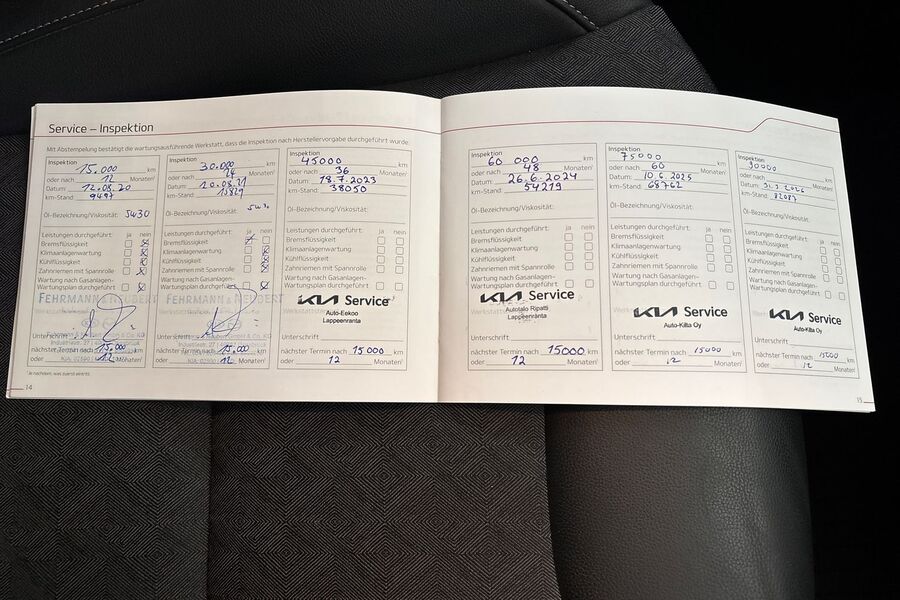 Service – Inspektion
Mit Abstempelung bestätigt die wartungsausführende Werkstatt, dass die Inspektion nach Herstellervorgabe durchgeführt wurde:
Inspektion
15.000 km
oder nach 12 Monaten¹
Datum: 12.08.20
km-Stand: 9497
Öl-Bezeichnung/Viskosität: 5W30
Leistungen durchgeführt: ja nein
Bremsflüssigkeit
Klimaanlagenwartung
Kühlflüssigkeit
Zahnriemen mit Spannrolle
Wartung nach Gasanlagen-
Wartungsplan durchgeführt
FEHRMANN & NEUBERT
Unterschrift
nächster Termin nach 15.000 km
oder 12 Monaten¹
Inspektion
30.000 km
oder nach Monaten¹
Datum:
km-Stand:
Öl-Bezeichnung/Viskosität: 5W30
Leistungen durchgeführt: ja nein
Bremsflüssigkeit
Klimaanlagenwartung
Kühlflüssigkeit
Zahnriemen mit Spannrolle
Wartung nach Gasanlagen-
Wartungsplan durchgeführt
FEHRMANN & NEUBERT
Unterschrift
nächster Termin nach 15.000 km
oder 12 Monaten¹
Inspektion
45000 km
oder nach 36 Monaten¹
Datum: 18.7.2023
km-Stand: 38050
Öl-Bezeichnung/Viskosität:
Leistungen durchgeführt: ja nein
Bremsflüssigkeit
Klimaanlagenwartung
Kühlflüssigkeit
Zahnriemen mit Spannrolle
Wartung nach Gasanlagen-
Wartungsplan durchgeführt
KIA Service
Auto-Eekoo
Lappeenranta
Unterschrift
nächster Termin nach 15000 km
oder 12 Monaten¹
¹Je nachdem, was zuerst eintritt.
14
Inspektion
60 000 km
oder nach 48 Monaten¹
Datum: 26.6.2024
km-Stand: 54219
Öl-Bezeichnung/Viskosität:
Leistungen durchgeführt: ja nein
Bremsflüssigkeit
Klimaanlagenwartung
Kühlflüssigkeit
Zahnriemen mit Spannrolle
Wartung nach Gasanlagen-
Wartungsplan durchgeführt
KIA Service
Autotalo Ripatti
Lappeenranta
Unterschrift
nächster Termin nach 15000 km
oder 12 Monaten¹
Inspektion
75000 km
oder nach 60 Monaten¹
Datum: 10.6.2025
km-Stand: 68762
Öl-Bezeichnung/Viskosität:
Leistungen durchgeführt: ja nein
Bremsflüssigkeit
Klimaanlagenwartung
Kühlflüssigkeit
Zahnriemen mit Spannrolle
Wartung nach Gasanlagen-
Wartungsplan durchgeführt
KIA Service
Auto-Kilta Oy
Unterschrift
nächster Termin nach 15000 km
oder 12 Monaten¹
Inspektion
90000 km
oder nach Monaten¹
Datum: 31.3.2026
km-Stand: 82087
Öl-Bezeichnung/Viskosität:
Leistungen durchgeführt: ja nein
Bremsflüssigkeit
Klimaanlagenwartung
Kühlflüssigkeit
Zahnriemen mit Spannrolle
Wartung nach Gasanlagen-
Wartungsplan durchgeführt
KIA Service
Auto-Kilta Oy
Unterschrift
nächster Termin nach 15000 km
oder 12 Monaten¹
15